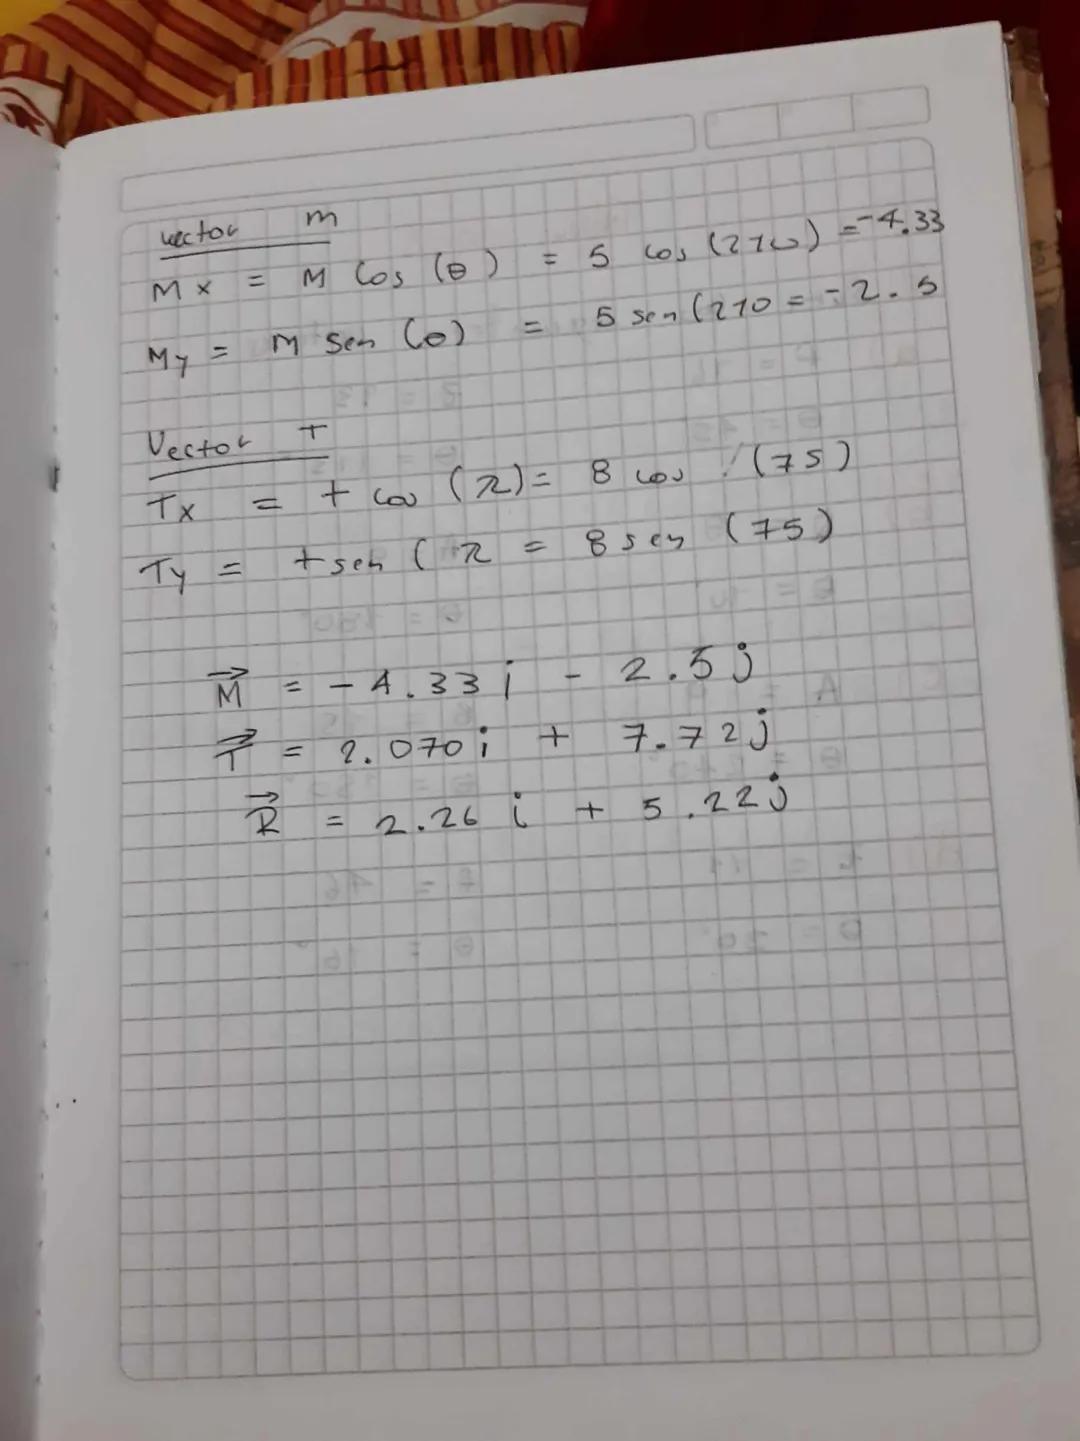 vector m
Mx = M Cos (θ) = 5 cos (210) = -4.33
My = M Sen (θ) = 5 sen (210 = -2.5
Vector T
Tx = t cos (r) = 8 cos (75)
Ty = t sen ( r = 8 sen (75)
M = -4.33 i - 2.5 j
T = 2.070 i + 7.72 j
R = 2.26 i + 5.22 j